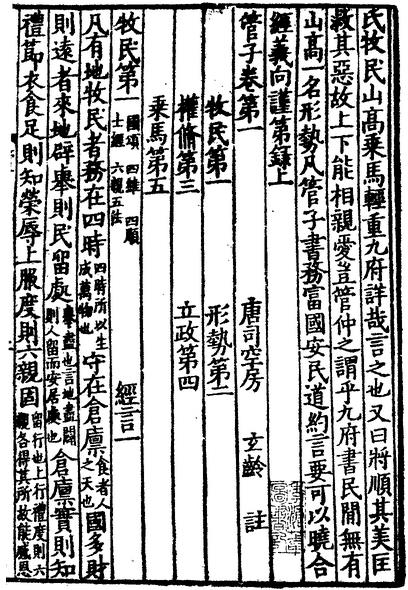 氏牧民山高乘馬輕重九府詳哉言之也又曰將順其美匡
救其惡故上下能相親愛豈管仲之謂乎九府書民閒無有
山高一名形勢凡管子書務富國安民道約言要可以曉合
經義向謹第錄上
管子卷第一 唐司空房 玄齡 註
牧民第一 形勢第二
權脩第三 立政第四
乘馬第五
牧民第一 國頌 四維 四順 士經 六親五法 經言一
凡有地牧民者務在四時四時所以生成萬物也守在倉廪食者人之天也國多財
則遠者來地辟舉則民留處舉盡也言地盡闢則人留而安居處也倉廪實則知
禮節衣食足則知榮辱上服度則六親固服行也上行禮度則六親各得其所故能感恩